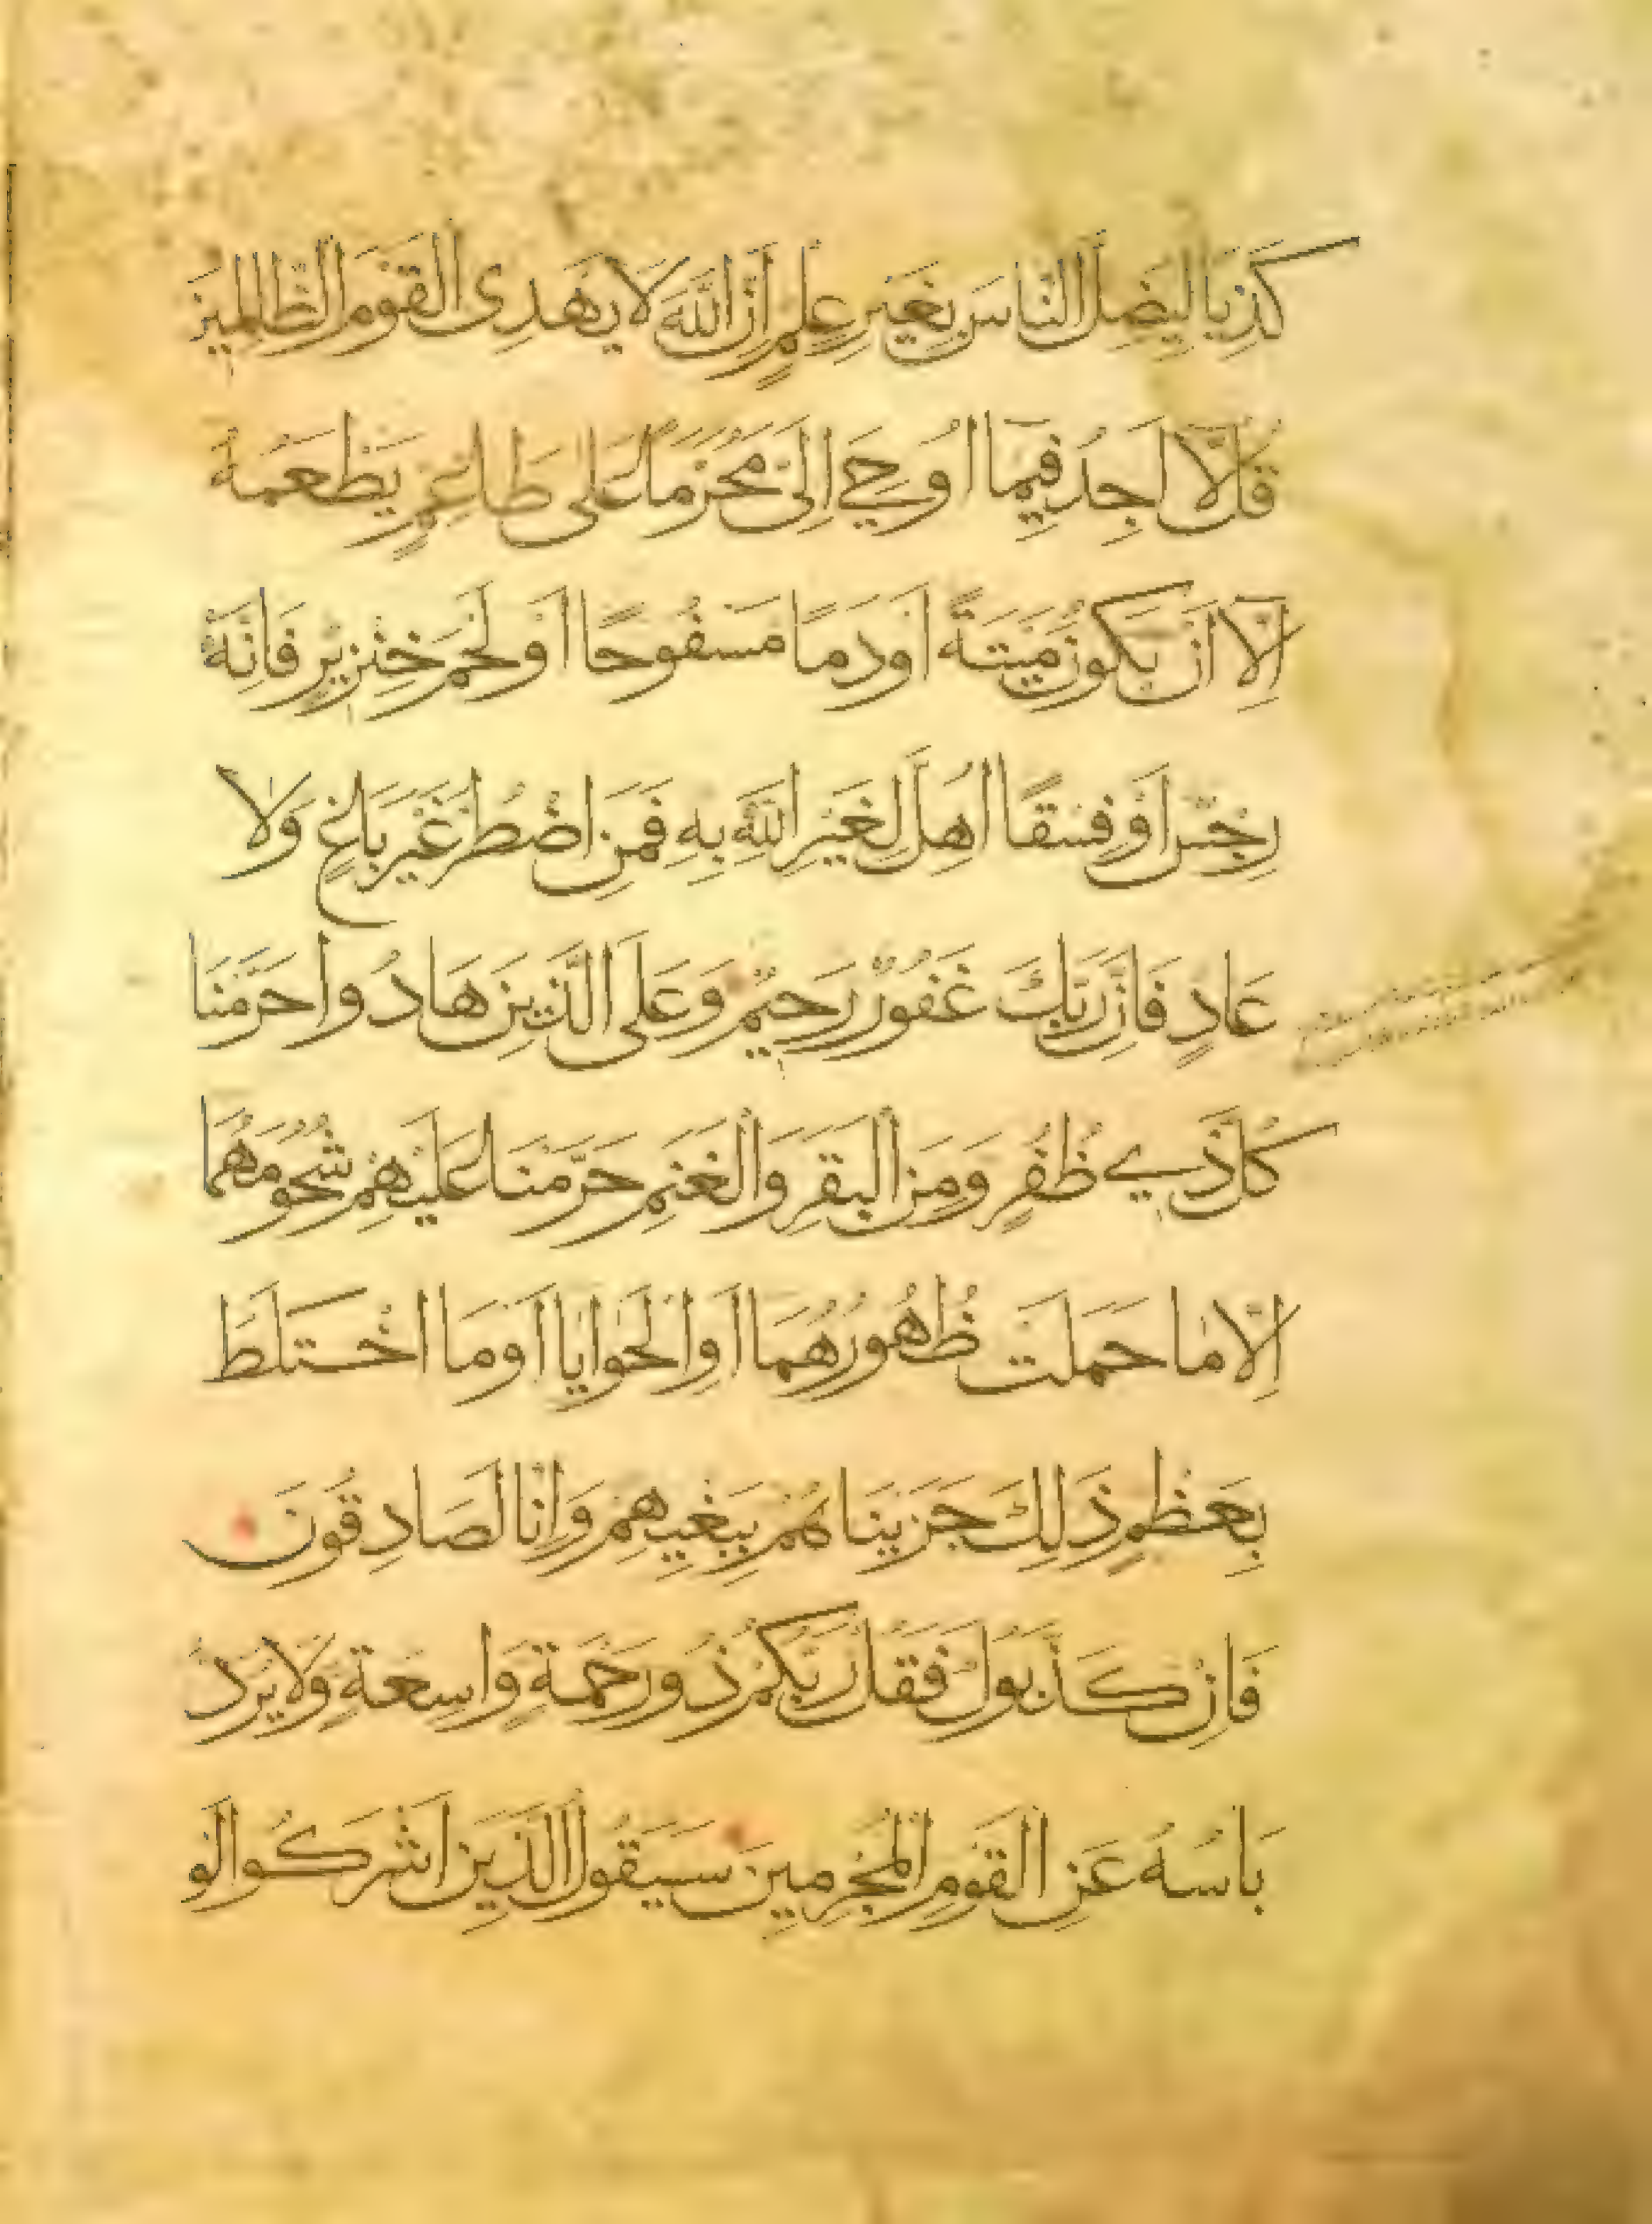 كَذِبًا لِيُضِلَّ النَّاسَ بِغَيْرِ عِلْمٍ اِنَّ اللَّهَ لَا يَهْدِى الْقَوْمَ الظَّالِمِينَ
قُل لَّا اَجِدُ فِيمَا اُوحِيَ اِلَىَّ مُحَرَّمًا عَلَى طَاعِمٍ يَطْعَمُهُ
اِلَّا اَنْ يَكُونَ مَيْتَةً اَوْ دَمًا مَسْفُوحًا اَوْ لَحْمَ خِنْزِيرٍ فَاِنَّهُ
رِجْسٌ اَوْ فِسْقًا اُهِلَّ لِغَيْرِ اللَّهِ بِهِ فَمَنِ اضْطُرَّ غَيْرَ بَاغٍ وَلَا
عَادٍ فَاِنَّ رَبَّكَ غَفُورٌ رَحِيمٌ وَعَلَى الَّذِينَ هَادُوا حَرَّمْنَا
كُلَّ ذِي ظُفُرٍ وَمِنَ الْبَقَرِ وَالْغَنَمِ حَرَّمْنَا عَلَيْهِمْ شُحُومَهُمَا
اِلَّا مَا حَمَلَتْ ظُهُورُهُمَا اَوِ الْحَوَايَا اَوْ مَا اخْتَلَطَ
بِعَظْمٍ ذَلِكَ جَزَيْنَاهُمْ بِبَغْيِهِمْ وَاِنَّا لَصَادِقُونَ
فَاِنْ كَذَّبُوكَ فَقُلْ رَبُّكُمْ ذُو رَحْمَةٍ وَاسِعَةٍ وَلَا يُرَدُّ
بَاْسُهُ عَنِ الْقَوْمِ الْمُجْرِمِينَ سَيَقُولُ الَّذِينَ اَشْرَكُوا لَوْ